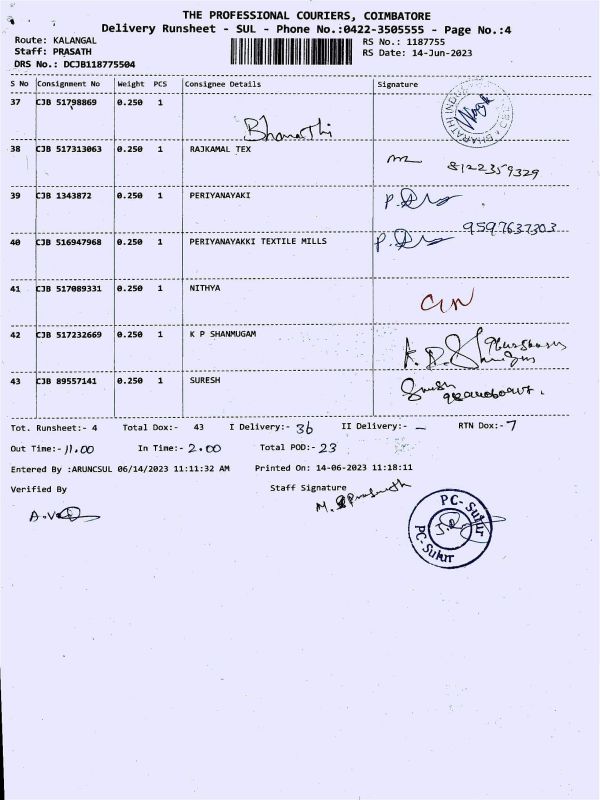 THE PROFESSIONAL COURIERS, COIMBATORE
Delivery Runsheet - SUL - Phone No.:0422-3505555 - Page No.:4
Route: KALANGAL RS No.: 1187755
Staff: PRASATH RS Date: 14-Jun-2023
DRS No.: DCJB118775504
S No Consignment No Weight PCS Consignee Details Signature
37 CJB 51798869 0.250 1
Bharathi
38 CJB 517313063 0.250 1 RAJKAMAL TEX
8122359329
39 CJB 1343872 0.250 1 PERIYANAYAKI
9597637303
40 CJB 516947968 0.250 1 PERIYANAYAKKI TEXTILE MILLS
41 CJB 517089331 0.250 1 NITHYA
42 CJB 517232669 0.250 1 K P SHANMUGAM
43 CJB 89557141 0.250 1 SURESH
Tot. Runsheet:- 4 Total Dox:- 43 I Delivery:- 36 II Delivery:- — RTN Dox:- 7
Out Time:- 11.00 In Time:- 2.00 Total POD:- 23
Entered By :ARUNCSUL 06/14/2023 11:11:32 AM Printed On: 14-06-2023 11:18:11
Verified By Staff Signature
PC-Sulur
PC-Sulur